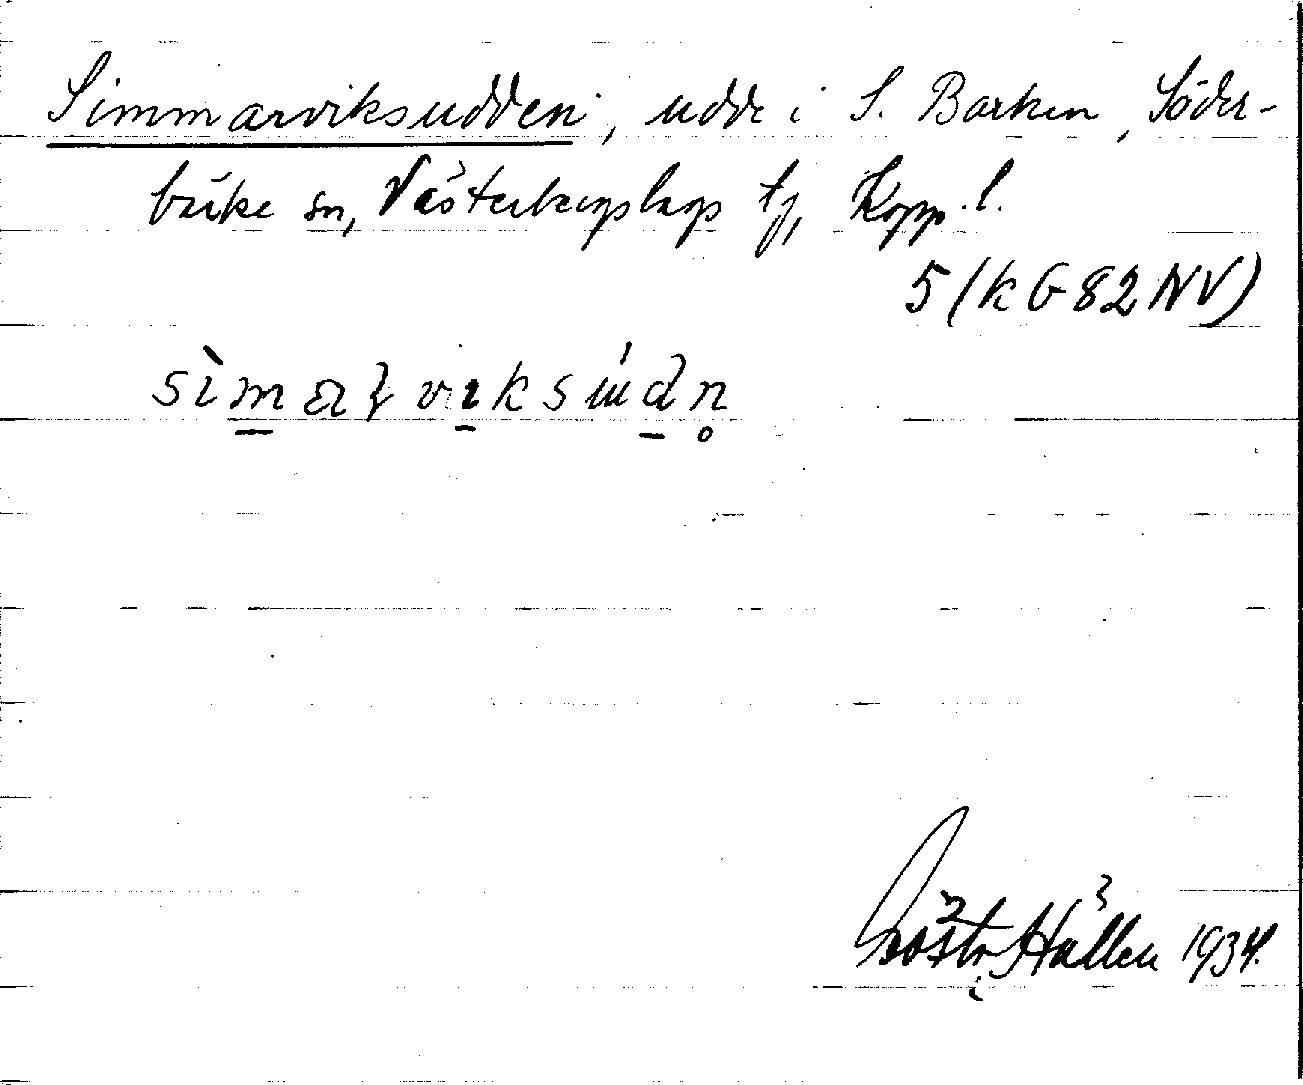 Simmarviksudden, udde i S. Barken, Söder-
bärke sn, Västerbergslags tg, Kopp. l.
5 (k G 82 NV)
sìmarviksudn̥
Gösta Hallén 1934.